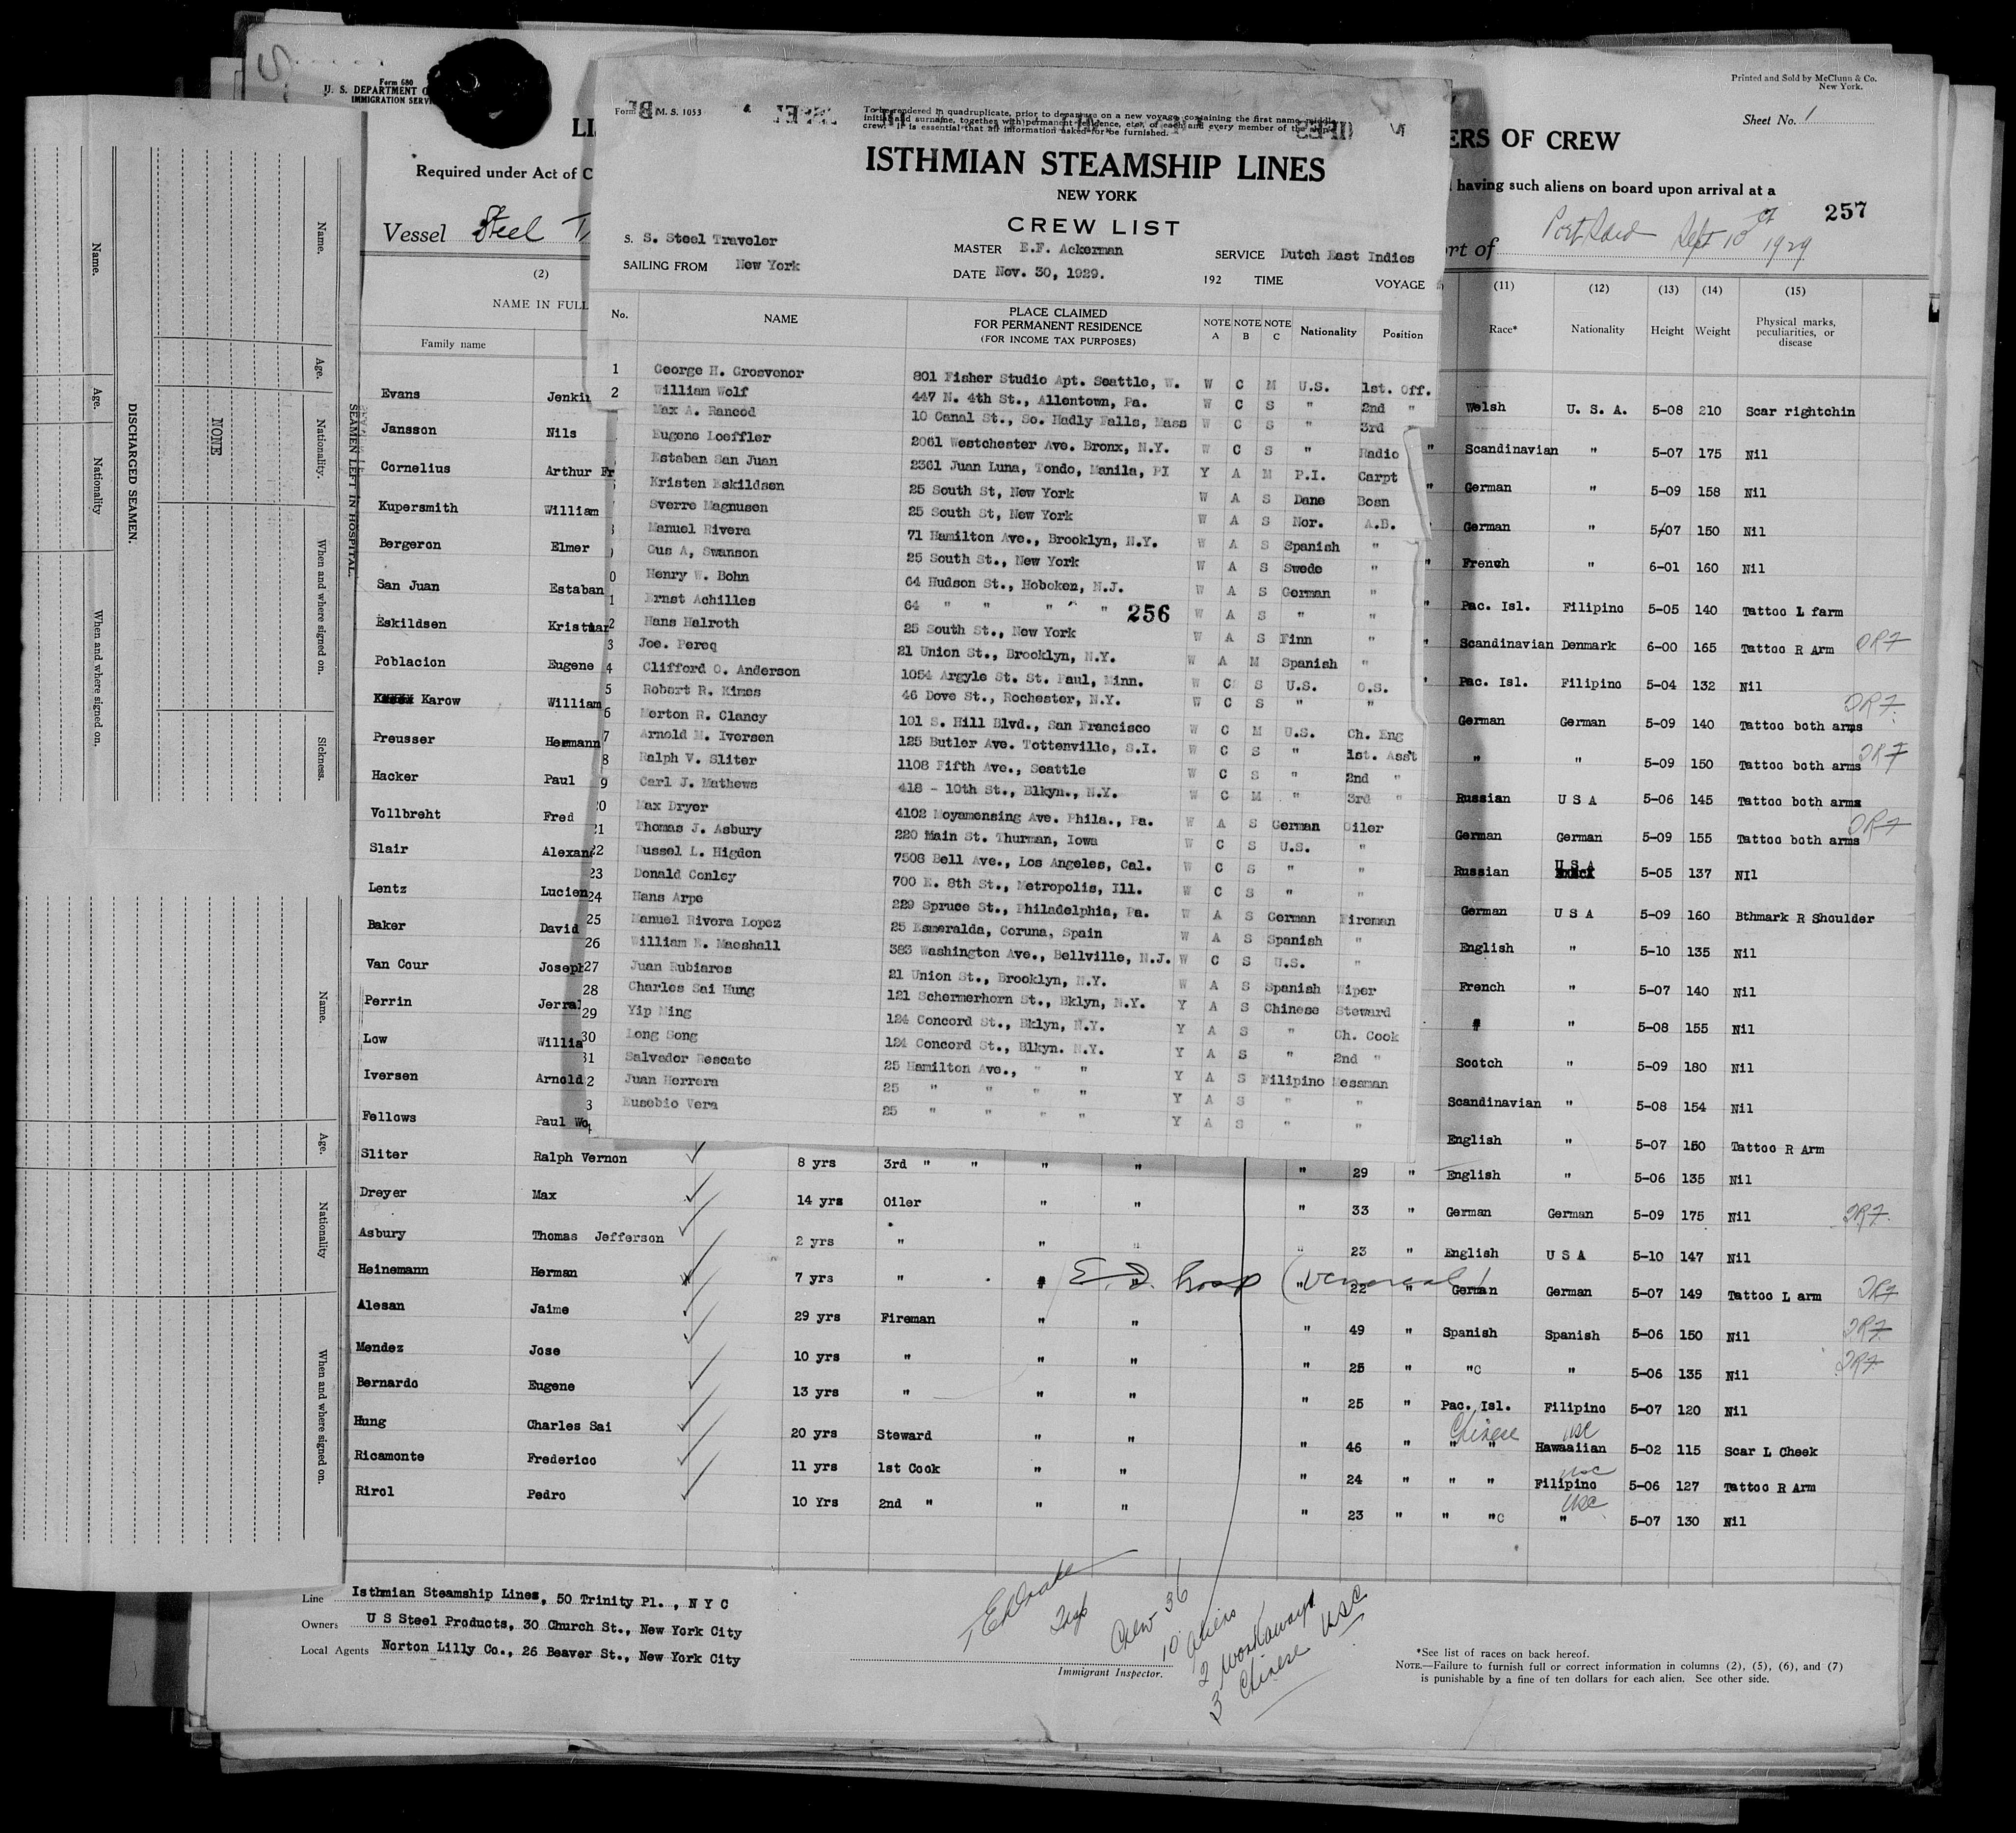 Form 680
U. S. DEPARTMENT O
IMMIGRATION SERV
Printed and Sold by McClunn & Co.
New York.
Sheet No. 1
LI
ERS OF CREW
Required under Act of C
having such aliens on board upon arrival at a
257
Vessel Steel T
ort of Port Said Sept 10 1929
(2)
(11) (12) (13) (14) (15)
NAME IN FULL
Family name
Race* Nationality Height Weight Physical marks, peculiarities, or disease
Form M. S. 1053
To be rendered in quadruplicate, prior to departure on a new voyage, containing the first name, middle
initial and surname, together with permanent residence, etc. of each and every member of the
crew. It is essential that all information asked for be furnished.
ISTHMIAN STEAMSHIP LINES
NEW YORK
CREW LIST
S. S. Steel Traveler MASTER E.F. Ackerman SERVICE Dutch East Indies
SAILING FROM New York DATE Nov. 30, 1929. 192 TIME VOYAGE
No. NAME PLACE CLAIMED FOR PERMANENT RESIDENCE (FOR INCOME TAX PURPOSES) NOTE A NOTE B NOTE C Nationality Position
1 George H. Grosvenor 801 Fisher Studio Apt. Seattle, W. W C M U.S. 1st. Off.
2 William Wolf 447 N. 4th St., Allentown, Pa. W C S " 2nd "
Max A. Rancod 10 Canal St., So. Hadly Falls, Mass W C S " 3rd "
Eugene Loeffler 2061 Westchester Ave. Bronx, N.Y. W C S " Radio
Estaban San Juan 2361 Juan Luna, Tondo, Manila, PI Y A M P.I. Carpt
Kristen Eskildsen 25 South St, New York W A S Dane Bosn
Sverre Magnusen 25 South St, New York W A S Nor. A.B.
Manuel Rivera 71 Hamilton Ave., Brooklyn, N.Y. W A S Spanish "
Gus A, Swanson 25 South St., New York W A S Swede "
0 Henry W. Bohn 64 Hudson St., Hoboken, N.J. W A S German "
1 Ernst Achilles 64 " " " " " 256 W A S " "
2 Hans Halroth 25 South St., New York W A S Finn "
3 Joe. Pereq 21 Union St., Brooklyn, N.Y. W A M Spanish "
4 Clifford O. Anderson 1054 Argyle St. St. Paul, Minn. W C S U.S. O.S.
5 Robert R. Kimes 46 Dove St., Rochester, N.Y. W C S " "
6 Merton R. Clancy 101 S. Hill Blvd., San Francisco W C M U.S. Ch. Eng
7 Arnold M. Iversen 125 Butler Ave. Tottenville, S.I. W C S " 1st. Asst
8 Ralph V. Sliter 1108 Fifth Ave., Seattle W C S " 2nd "
9 Carl J. Mathews 418 - 10th St., Blkyn., N.Y. W C M " 3rd "
20 Max Dryer 4102 Moyamensing Ave. Phila., Pa. W A S German Oiler
21 Thomas J. Asbury 220 Main St. Thurman, Iowa W C S U.S. "
22 Russel L. Higdon 7506 Bell Ave., Los Angeles, Cal. W C S " "
23 Donald Conley 700 E. 8th St., Metropolis, Ill. W C S " "
24 Hans Arpe 229 Spruce St., Philadelphia, Pa. W A S German Fireman
25 Manuel Rivera Lopez 25 Esmeralda, Coruna, Spain W A S Spanish "
26 William N. Maeshall 383 Washington Ave., Bellville, N.J. W C S U.S. "
27 Juan Rubiares 21 Union St., Brooklyn, N.Y. W A S Spanish Wiper
28 Charles Sai Hung 121 Schermerhorn St., Bklyn, N.Y. Y A S Chinese Steward
29 Yip Ming 124 Concord St., Bklyn, N.Y. Y A S " Ch. Cook
30 Long Song 124 Concord St., Blkyn. N.Y. Y A S " 2nd "
31 Salvador Rescate 25 Hamilton Ave., " " Y A S Filipino Messman
2 Juan Herrera 25 " " " " Y A S " "
3 Eusebio Vera 25 " " " " Y A S " "
4
Evans Jenkin Welsh U. S. A. 5-08 210 Scar rightchin
Jansson Nils " Scandinavian " 5-07 175 Nil
Cornelius Arthur Fr " German " 5-09 158 Nil
Kupersmith William " German " 5/07 150 Nil
Bergeron Elmer " French " 6-01 160 Nil
San Juan Estaban " Pac. Isl. Filipino 5-05 140 Tattoo L farm
Eskildsen Kristian " Scandinavian Denmark 6-00 165 Tattoo R Arm DR7
Poblacion Eugene " Pac. Isl. Filipino 5-04 132 Nil
Karow William German German 5-09 140 Tattoo both arms DR7
Preusser Hermann " " 5-09 150 Tattoo both arms DR7
Hacker Paul Russian U S A 5-06 145 Tattoo both arms
Vollbreht Fred German German 5-09 155 Tattoo both arms DR7
Slair Alexand Russian U S A 5-05 137 NIl
Lentz Lucien German U S A 5-09 160 Bthmark R Shoulder
Baker David English " 5-10 135 Nil
Van Cour Joseph French " 5-07 140 Nil
Perrin Jerral " " 5-08 155 Nil
Low Willia Scotch " 5-09 180 Nil
Iversen Arnold Scandinavian " 5-08 154 Nil
Fellows Paul Wo English " 5-07 150 Tattoo R Arm
Sliter Ralph Vernon 8 yrs 3rd " " " " " 29 " English " 5-06 135 Nil
Dreyer Max 14 yrs Oiler " " " 33 " German German 5-09 175 Nil DR7
Asbury Thomas Jefferson 2 yrs " " " " 23 " English U S A 5-10 147 Nil
Heinemann Herman 7 yrs " " E. I. hosp (Venereal) " 22 " German German 5-07 149 Tattoo L arm DR7
Alesan Jaime 29 yrs Fireman " " " 49 " Spanish Spanish 5-06 150 Nil DR7
Mendez Jose 10 yrs " " " " 25 " "C " 5-06 135 Nil DR7
Bernardo Eugene 13 yrs " " " " 25 " Pac. Isl. Filipino 5-07 120 Nil
Hung Charles Sai 20 yrs Steward " " " 46 " Chinese " " USC Hawaiian 5-02 115 Scar L Cheek
Ricamonte Frederico 11 yrs 1st Cook " " " 24 " " " USC Filipino 5-06 127 Tattoo R Arm
Rirol Pedro 10 Yrs 2nd " " " " 23 " " "C USC " 5-07 130 Nil
Line Isthmian Steamship Lines, 50 Trinity Pl. , N Y C
Owners U S Steel Products, 30 Church St., New York City
Local Agents Norton Lilly Co., 26 Beaver St., New York City
Immigrant Inspector.
Crew 36
10 aliens
2 workaways
3 Chinese USC
*See list of races on back hereof.
NOTE.—Failure to furnish full or correct information in columns (2), (5), (6), and (7)
is punishable by a fine of ten dollars for each alien. See other side.
DISCHARGED SEAMEN.
Name. Age. Nationality When and where signed on.
NONE
SEAMEN LEFT IN HOSPITAL.
Name. Age. Nationality. When and where signed on. Sickness.
Name. Age. Nationality When and where signed on.